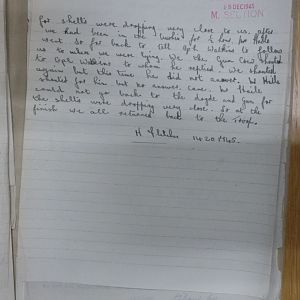 19 DEC 1945
M. SECTION
for shells were dropping very close to us, after
we had been in the for ½ hour Mr Hails
went so far back to tell Cpl Watkins to follow
us to where we were lying. We the Gun Crew shouted
to Cpl Watkins to whom he replied. We shouted
again but this time he did not answer. Mr Hails
shouted for him but no answer came. Mr Hails
could not go back to the and Gun for
the shells were dropping very close. So at the
finish we all returned back to the Troop.
H